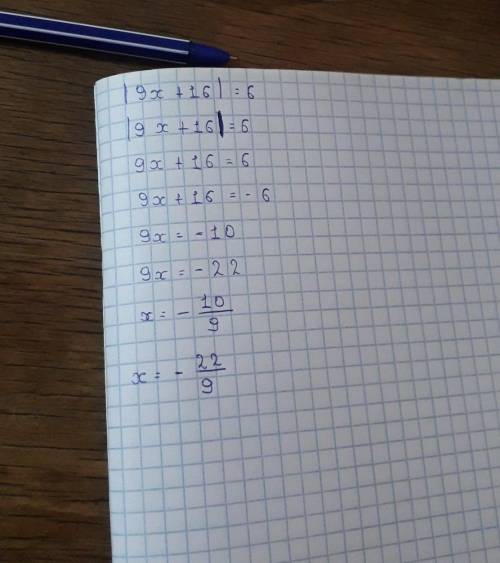 |9x + 16| = 6
|9 x + 16| = 6
9x + 16 = 6
9x + 16 = - 6
9x = - 10
9x = - 22
x = - 10/9
x = - 22/9